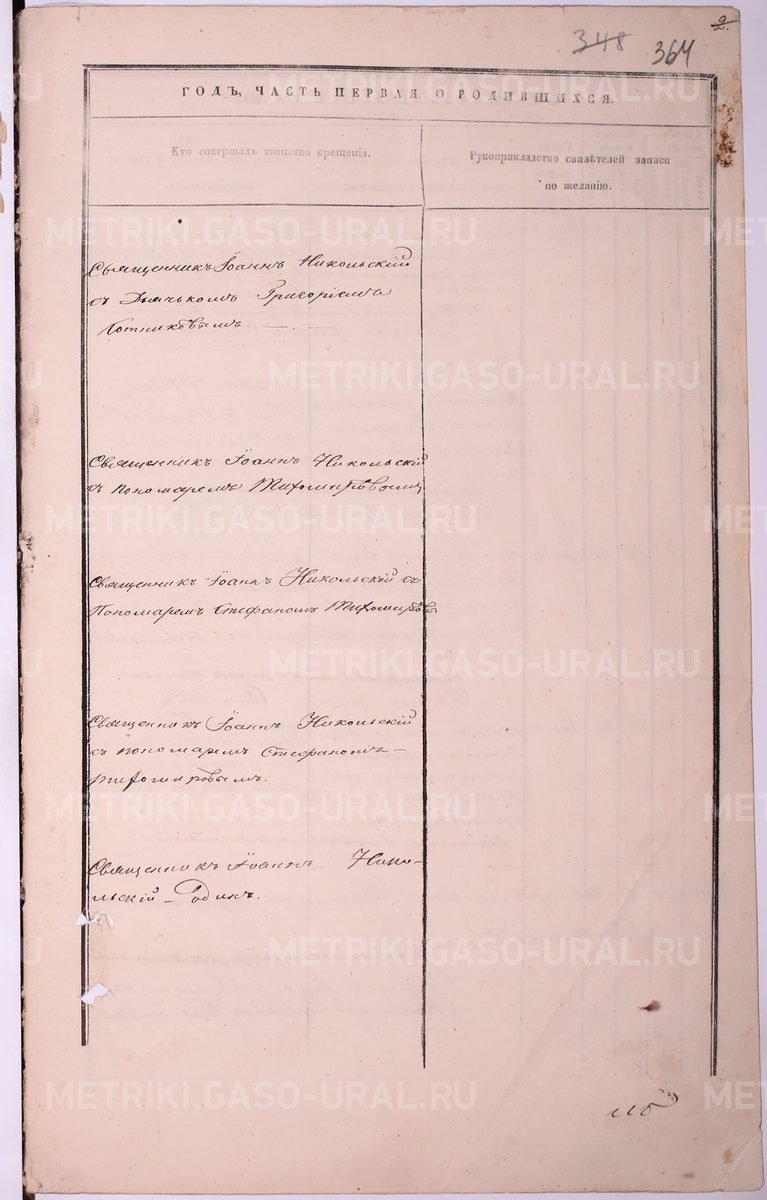 2.
348 364
ГОДЪ, ЧАСТЬ ПЕРВАЯ, О РОДИВШИХСЯ.
Кто совершалъ таинство крещенія.
Рукоприкладство свидѣтелей записи
по желанію.
Священникъ Іоаннъ Никольскій
съ Дьячькомъ Григоріемъ
Сотниковымъ.
Священникъ Іоаннъ Никольскій
съ пономаремъ Тихомировымъ
Священникъ Іоаннъ Никольскій съ
Пономаремъ Стефаномъ Тихомировы
Священникъ Іоаннъ Никольскій
съ пономаремъ Стефаномъ
Тихомировымъ.
Священникъ Іоаннъ Нико-
льскій Одинъ.
METRIKI.GASO-URAL.RU